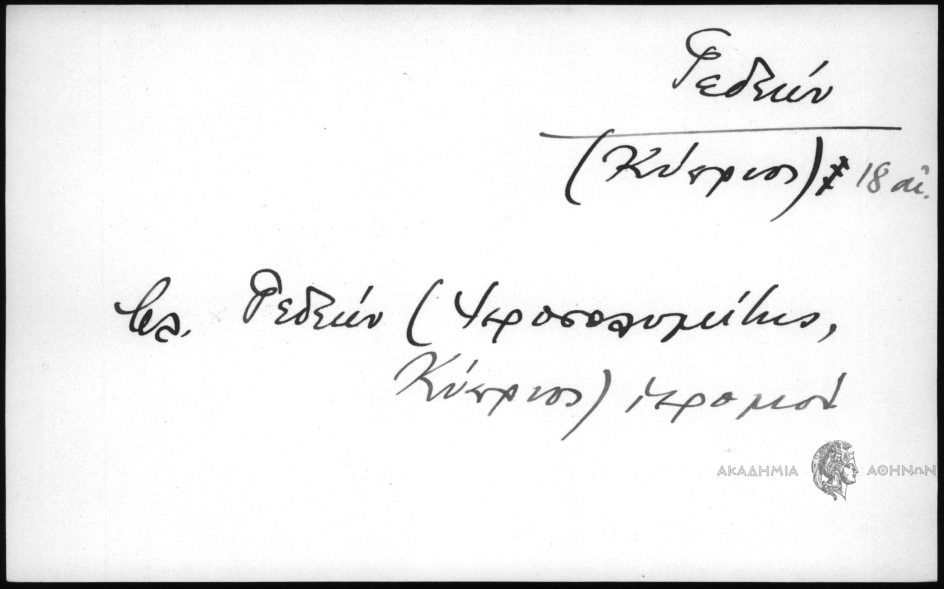 Γεδεών
(Κύπριος) 18 αἰ.
βλ. Γεδεών (Ἱεροσολυμίτης,
Κύπριος) ἱερομον
ΑΚΑΔΗΜΙΑ ΑΘΗΝΩΝ